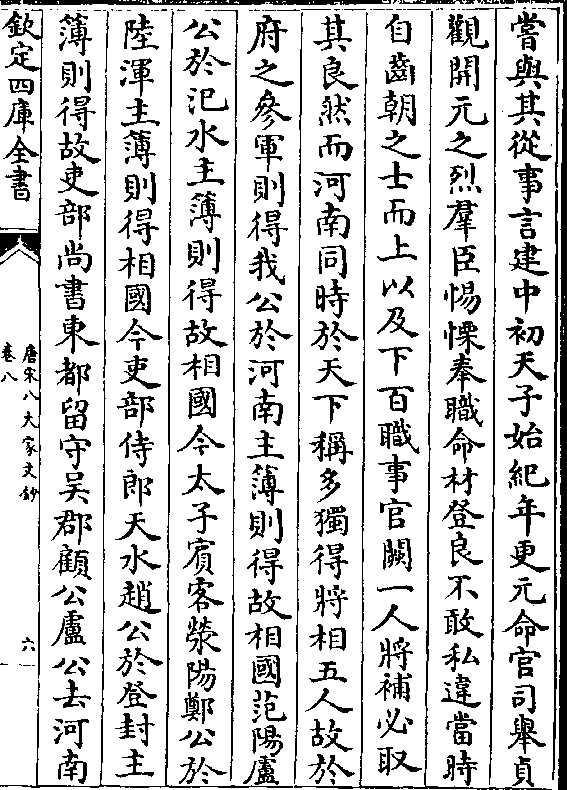 嘗與其從事言建中初天子始紀年更元命官司舉貞
觀開元之烈羣臣惕慄奉職命材登良不敢私違當時
自齒朝之士而上以及下百職事官闕一人將補必取
其良然而河南同時於天下稱多獨得將相五人故於
府之參軍則得我公於河南主簿則得故相國范陽盧
公於汜水主簿則得故相國今太子賓客滎陽鄭公於
陸渾主簿則得相國今吏部侍郎天水趙公於登封主
簿則得故吏部尚書東都留守吴郡顧公盧公去河南
欽定四庫全書
唐宋八大家文鈔
卷八
六